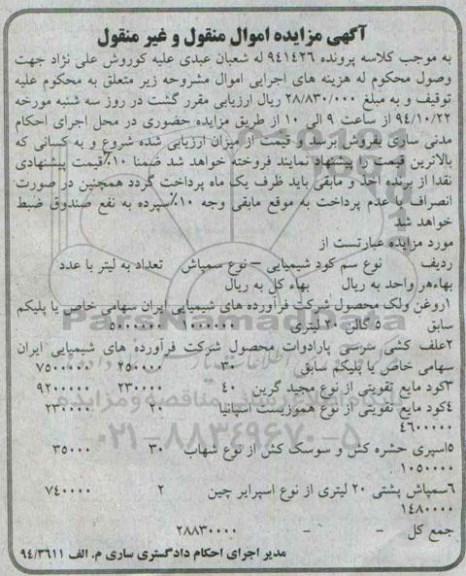 آگهی مزایده اموال منقول و غیر منقول
به موجب کلاسه پرونده ۹۴۱۴۲۶ له شعبان عبدی علیه کوروش علی نژاد جهت
وصول محکوم له هزینه های اجرایی اموال مشروحه زیر متعلق به محکوم علیه
توقیف و به مبلغ ۲۸/۸۳۰/۰۰۰ ریال ارزیابی مقرر گشت در روز سه شنبه مورخه
۹۴/۱۰/۲۲ از ساعت ۹ الی ۱۰ از طریق مزایده حضوری در محل اجرای احکام
مدنی ساری بفروش برسد و قیمت از میزان ارزیابی شده شروع و به کسانی که
بالاترین قیمت را پیشنهاد نمایند فروخته خواهد شد ضمنا ۱۰٪قیمت پیشنهادی
نقدا از برنده اخذ و مابقی باید ظرف یک ماه پرداخت گردد همچنین در صورت
انصراف یا عدم پرداخت به موقع مابقی وجه ۱۰٪سپرده به نفع صندوق ضبط
خواهد شد
مورد مزایده عبارتست از
ردیف نوع سم کود شیمیایی – نوع سمپاش تعداد به لیتر یا عدد
بهاءهر واحد به ریال بهاء کل به ریال
۱روغن ولک محصول شرکت فرآورده های شیمیایی ایران سهامی خاص یا پلیکم
سابق ۵ گالن ۲۰ لیتری
۲علف کشی سرسی پارادوات محصول شرکت فرآورده های شیمیایی ایران
سهامی خاص یا پلیکم سابق ۳۰ ۲۵۰۰۰۰ ۷۵۰۰۰۰۰
۳کود مایع تقویتی از نوع مجید گرین ۴۰ ۲۳۰۰۰۰ ۹۲۰۰۰۰۰
۴کود مایع تقویتی از نوع هموزیست اسپانیا ۲۰ ۲۳۰۰۰۰
۴۶۰۰۰۰۰
۵اسپری حشره کش و سوسک کش از نوع شهاب ۳۰ ۳۵۰۰۰
۱۰۵۰۰۰۰
۶سمپاش پشتی ۲۰ لیتری از نوع اسپرایر چین ۲ ۷۴۰۰۰۰
۱۴۸۰۰۰۰
جمع کل – – ۲۸۸۳۰۰۰۰
مدیر اجرای احکام دادگستری ساری م. الف ۹۴/۳۶۱۱
ParsNamadData
۰۲۱-۸۸۳۴۹۶۷۰-۵